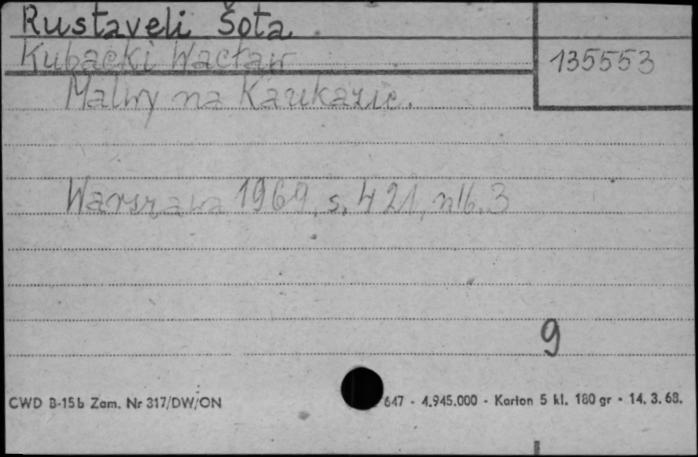 Rustaveli Šota
Kubacki Wacław
135553
Malwy na Kaukazie.
Warszawa 1969, s. 421, nlb. 3
9
CWD B-15b Zam. Nr 317/DW/ON
647 - 4.945.000 - Karton 5 kl. 180 gr - 14. 3. 68.